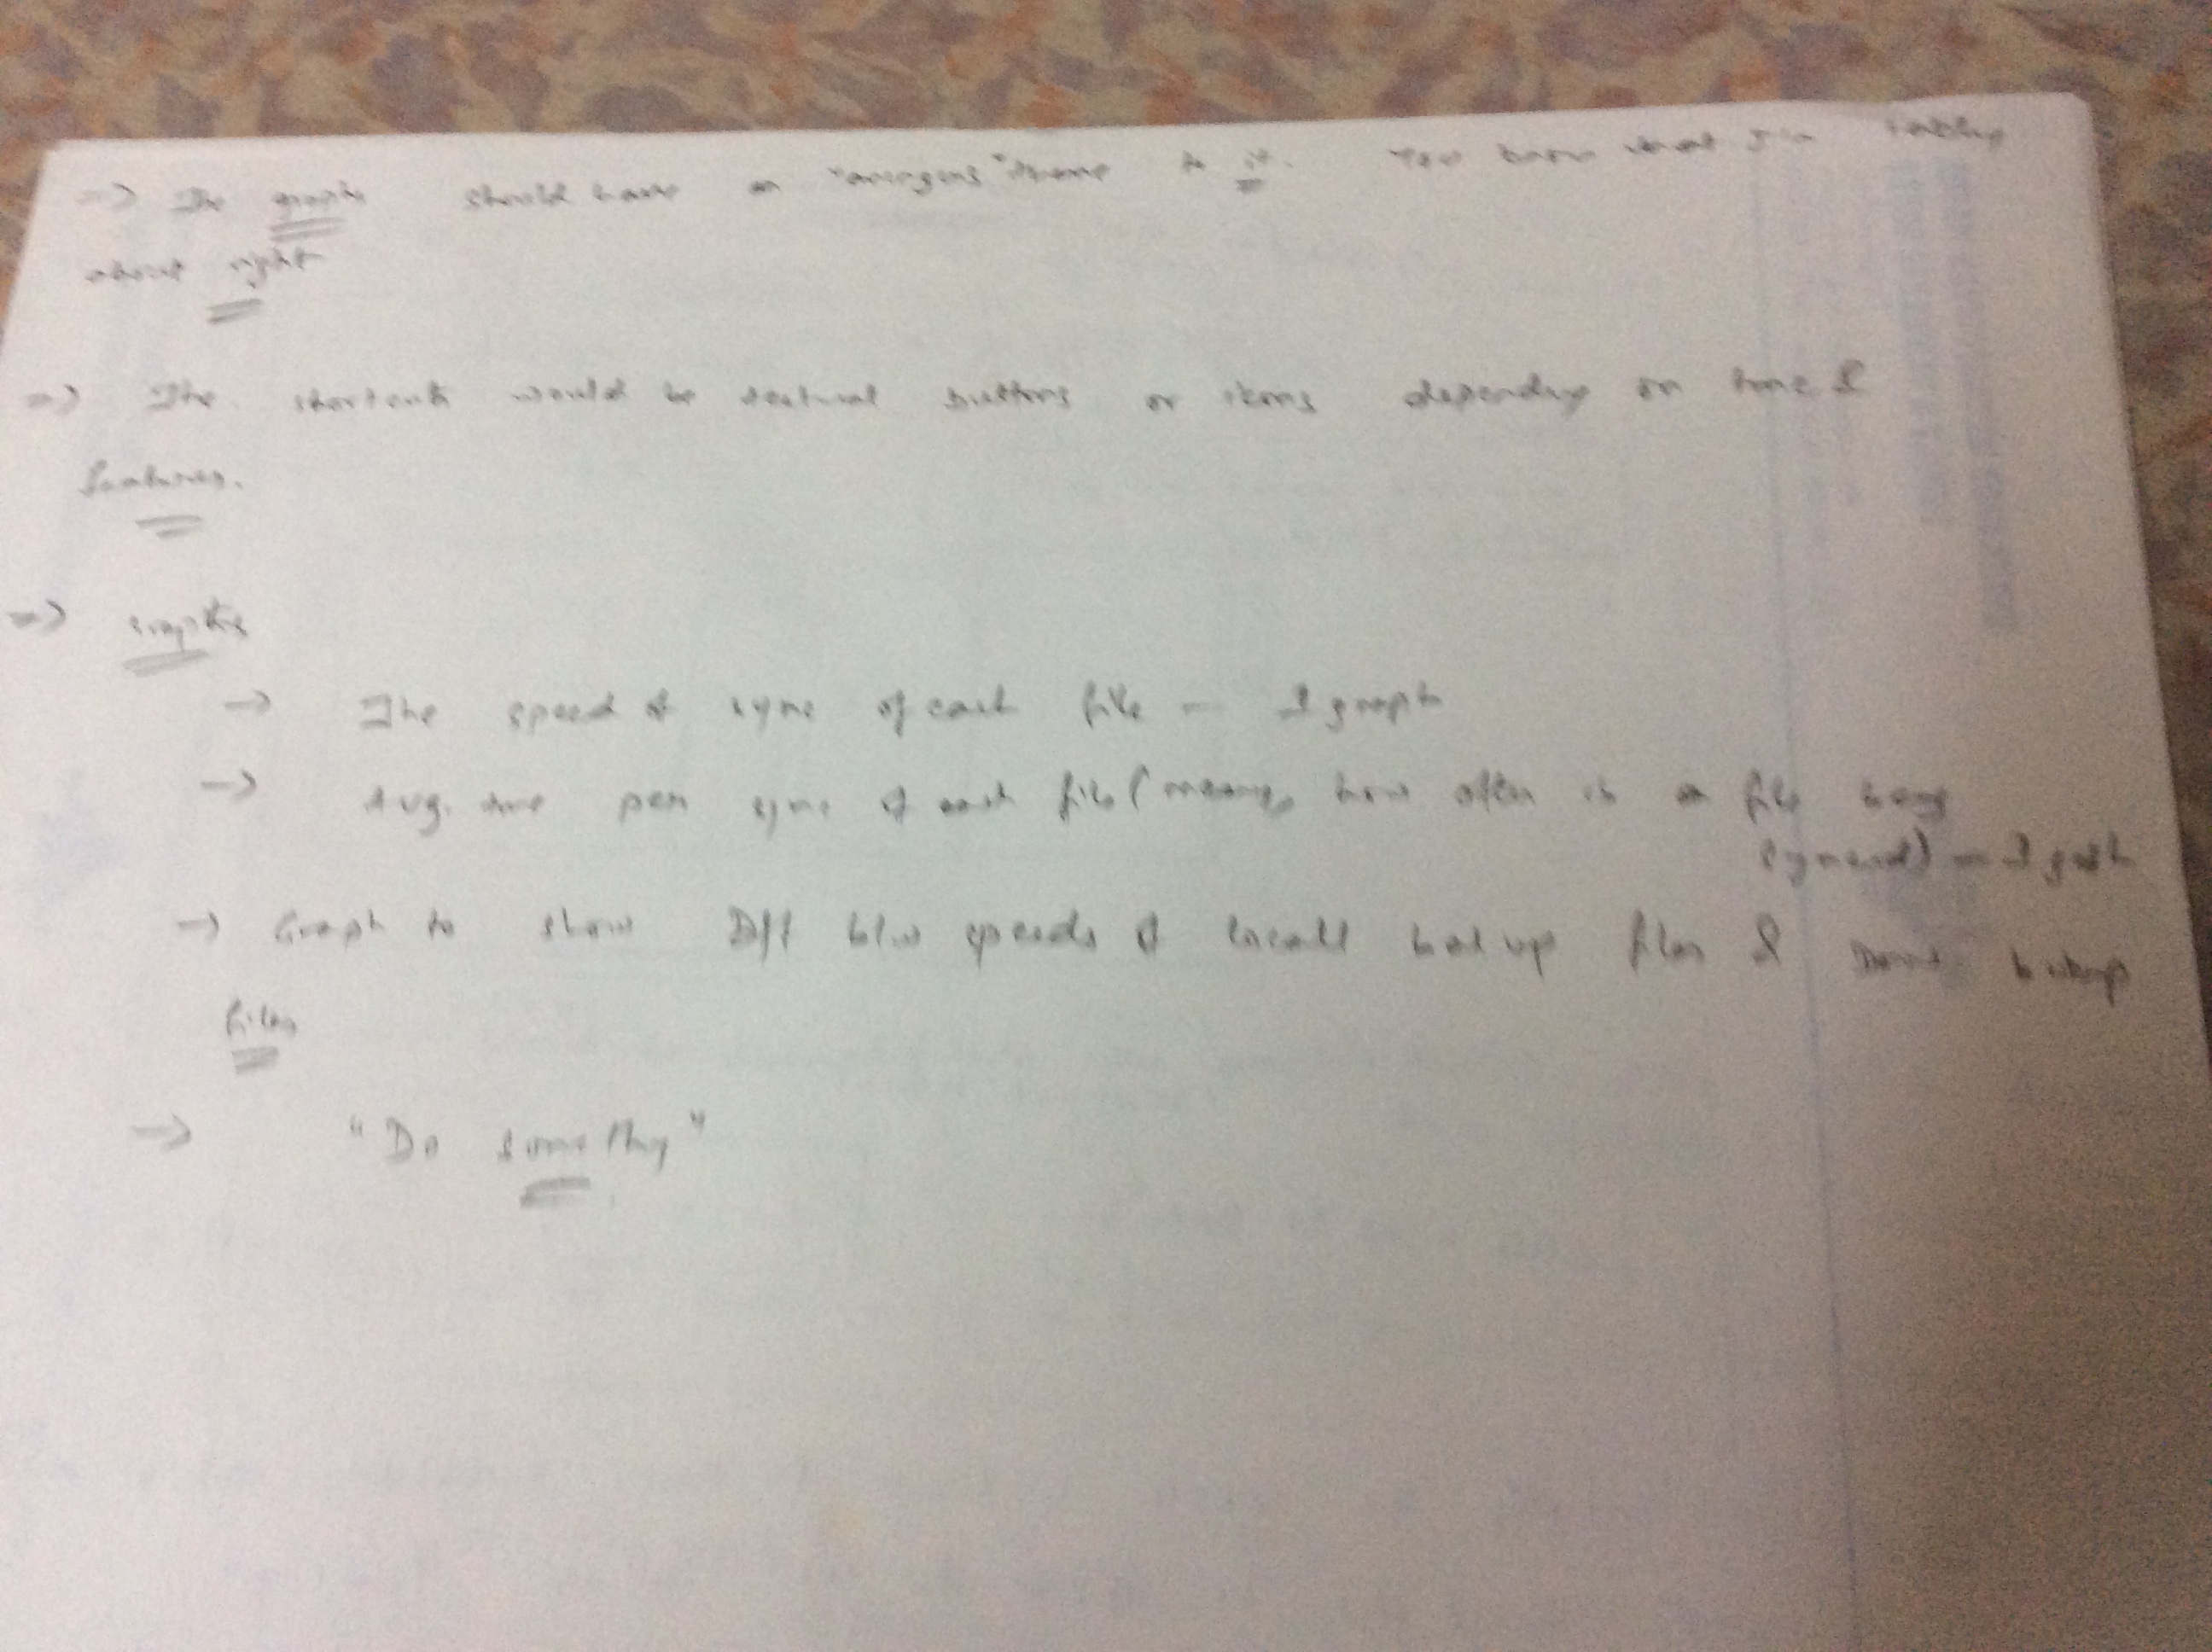 => The graphs should have an "amazing" theme to it. You know what I'm talking
about right
=> The shortcuts would be textual buttons or icons depending on time &
features.
=> Graphs
-> The speed of sync of each file - 1 graph
-> Avg. time per sync of each file (meaning how often is a file being
synced) - 1 graph
-> Graph to show Diff b/w speeds of locall backup files & backup
files
-> "Do something"